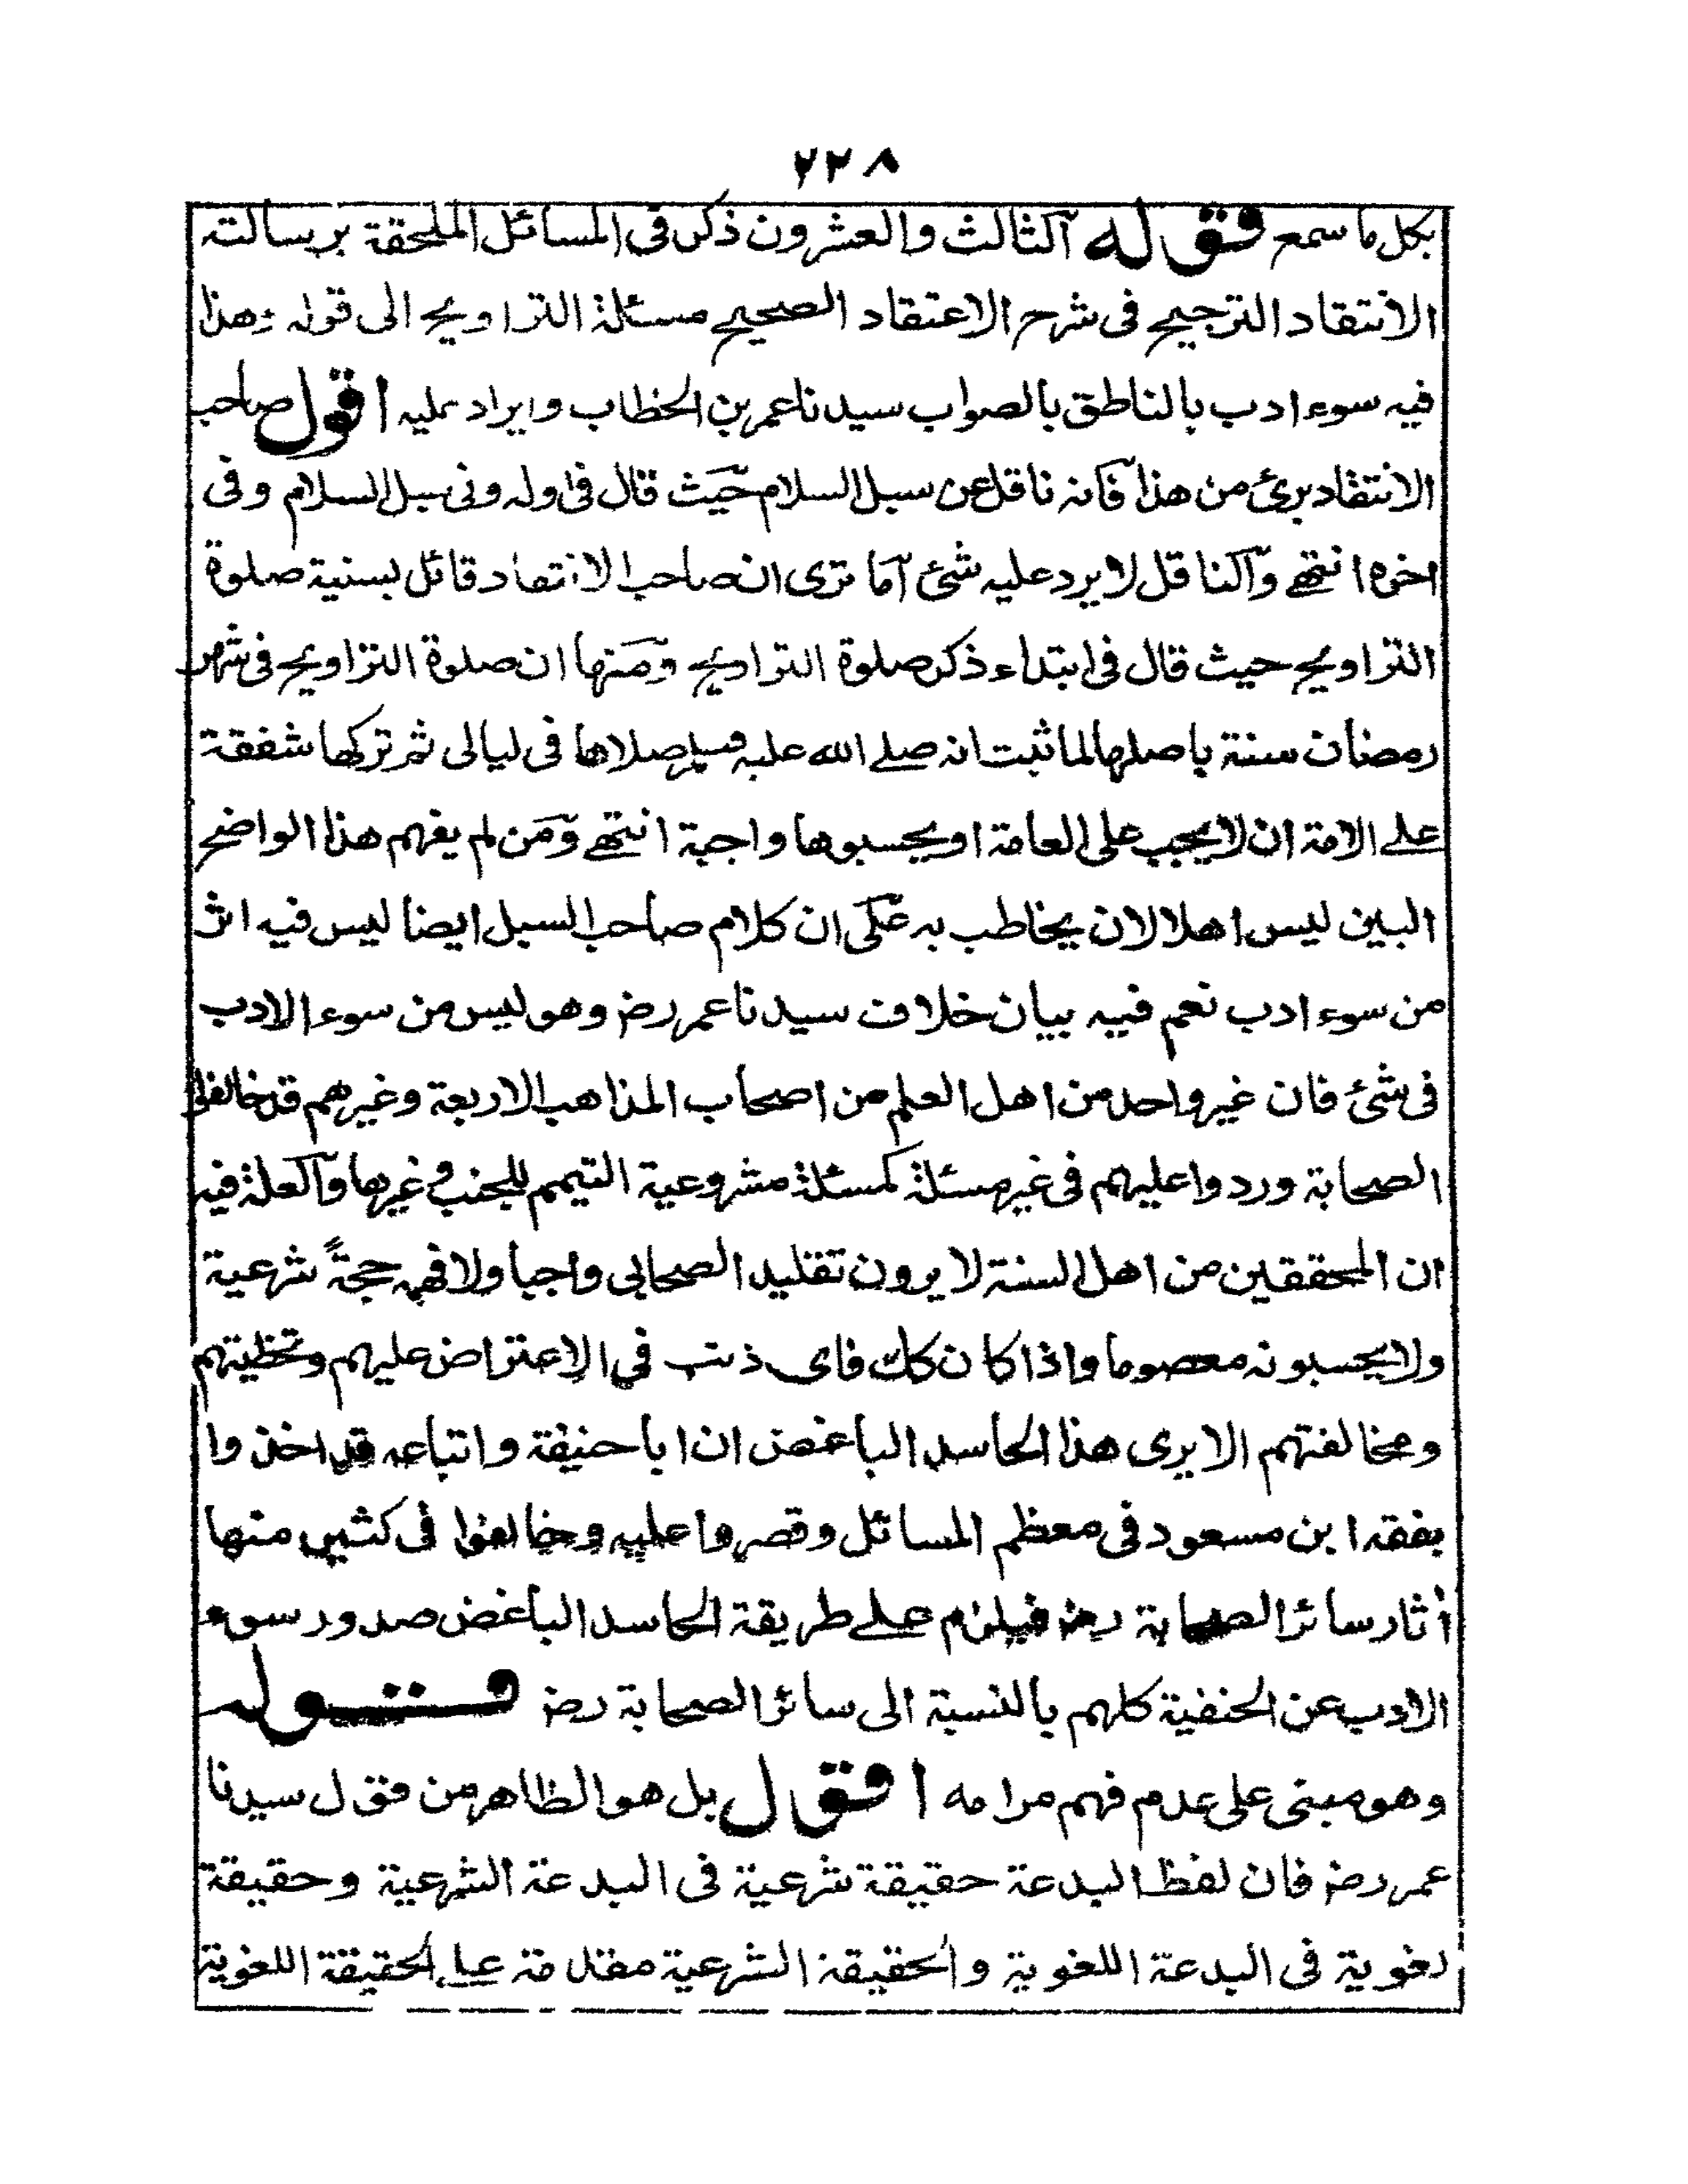 ٢٢٨
بكل ما سمع قوله الثالث والعشرون ذكر فى المسائل الملحقة برسالته
الانتقاد الترجيح فى شرح الاعتقاد الصحيح مسئلة التراويح الى قوله وهذا
فيه سوء ادب بالناطق بالصواب سيدنا عمر بن الخطاب وايراد عليه اقول صاحب
الانتقاد برئ من هذا فانه ناقل عن سبل السلام حيث قال فى اوله وفى سبل السلام وفى
اخره انتهى والناقل لا يرد عليه شئ اما ترى ان صاحب الانتقاد قائل بسنية صلوة
التراويح حيث قال فى ابتداء ذكر صلوة التراويح ومنها ان صلوة التراويح فى شهر
رمضان سنة باصلها لما ثبت انه صلى الله عليه وسلم صلاها فى ليالى ثم تركها شفقة
على الامة ان لا يجب على العامة او يحسبوها واجبة انتهى ومن لم يفهم هذا الواضح
البين ليس اهلا لان يخاطب به على ان كلام صاحب السبل ايضا ليس فيه اثر
من سوء ادب نعم فيه بيان خلاف سيدنا عمر رض وهو ليس من سوء الادب
فى شئ فان غير واحد من اهل العلم من اصحاب المذاهب الاربعة وغيرهم قد خالفوا
الصحابة وردوا عليهم فى غير مسئلة كمسئلة مشروعية التيمم للجنب وغيرها والعلة فيه
ان المحققين من اهل السنة لا يرون تقليد الصحابى واجبا ولا فهمه حجةً شرعية
ولا يحسبونه معصوما واذا كان كك فاى ذنب فى الاعتراض عليهم وتخطيتهم
ومخالفتهم الا يرى هذا الحاسد الباغض ان ابا حنيفة واتباعه قد اخذوا
بفقه ابن مسعود فى معظم المسائل وقصروا عليه وخالفوا فى كثير منها
أثار سائر الصحابة رض فيلزم على طريقة الحاسد الباغض صدور سوء
الادب عن الحنفية كلهم بالنسبة الى سائر الصحابة رض قوله
وهو مبنى على عدم فهم مرامه اقول بل هو الظاهر من قول سيدنا
عمر رض فان لفظ البدعة حقيقة شرعية فى البدعة الشرعية وحقيقة
لغوية فى البدعة اللغوية والحقيقة الشرعية مقدمة على الحقيقة اللغوية